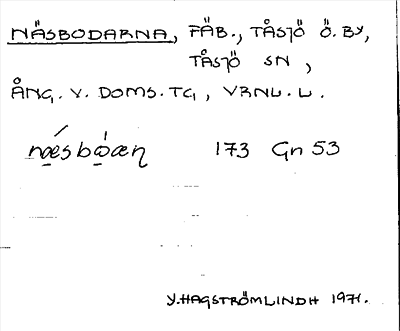 NÄSBODARNA, FÄB., TÅSJÖ Ö. BY,
TÅSJÖ SN,
ÅNG. V. DOMS. TG, VRNL. L.
næsbωæɳ 173 Gn 53
Y. HAGSTRÖMLINDH 1971.